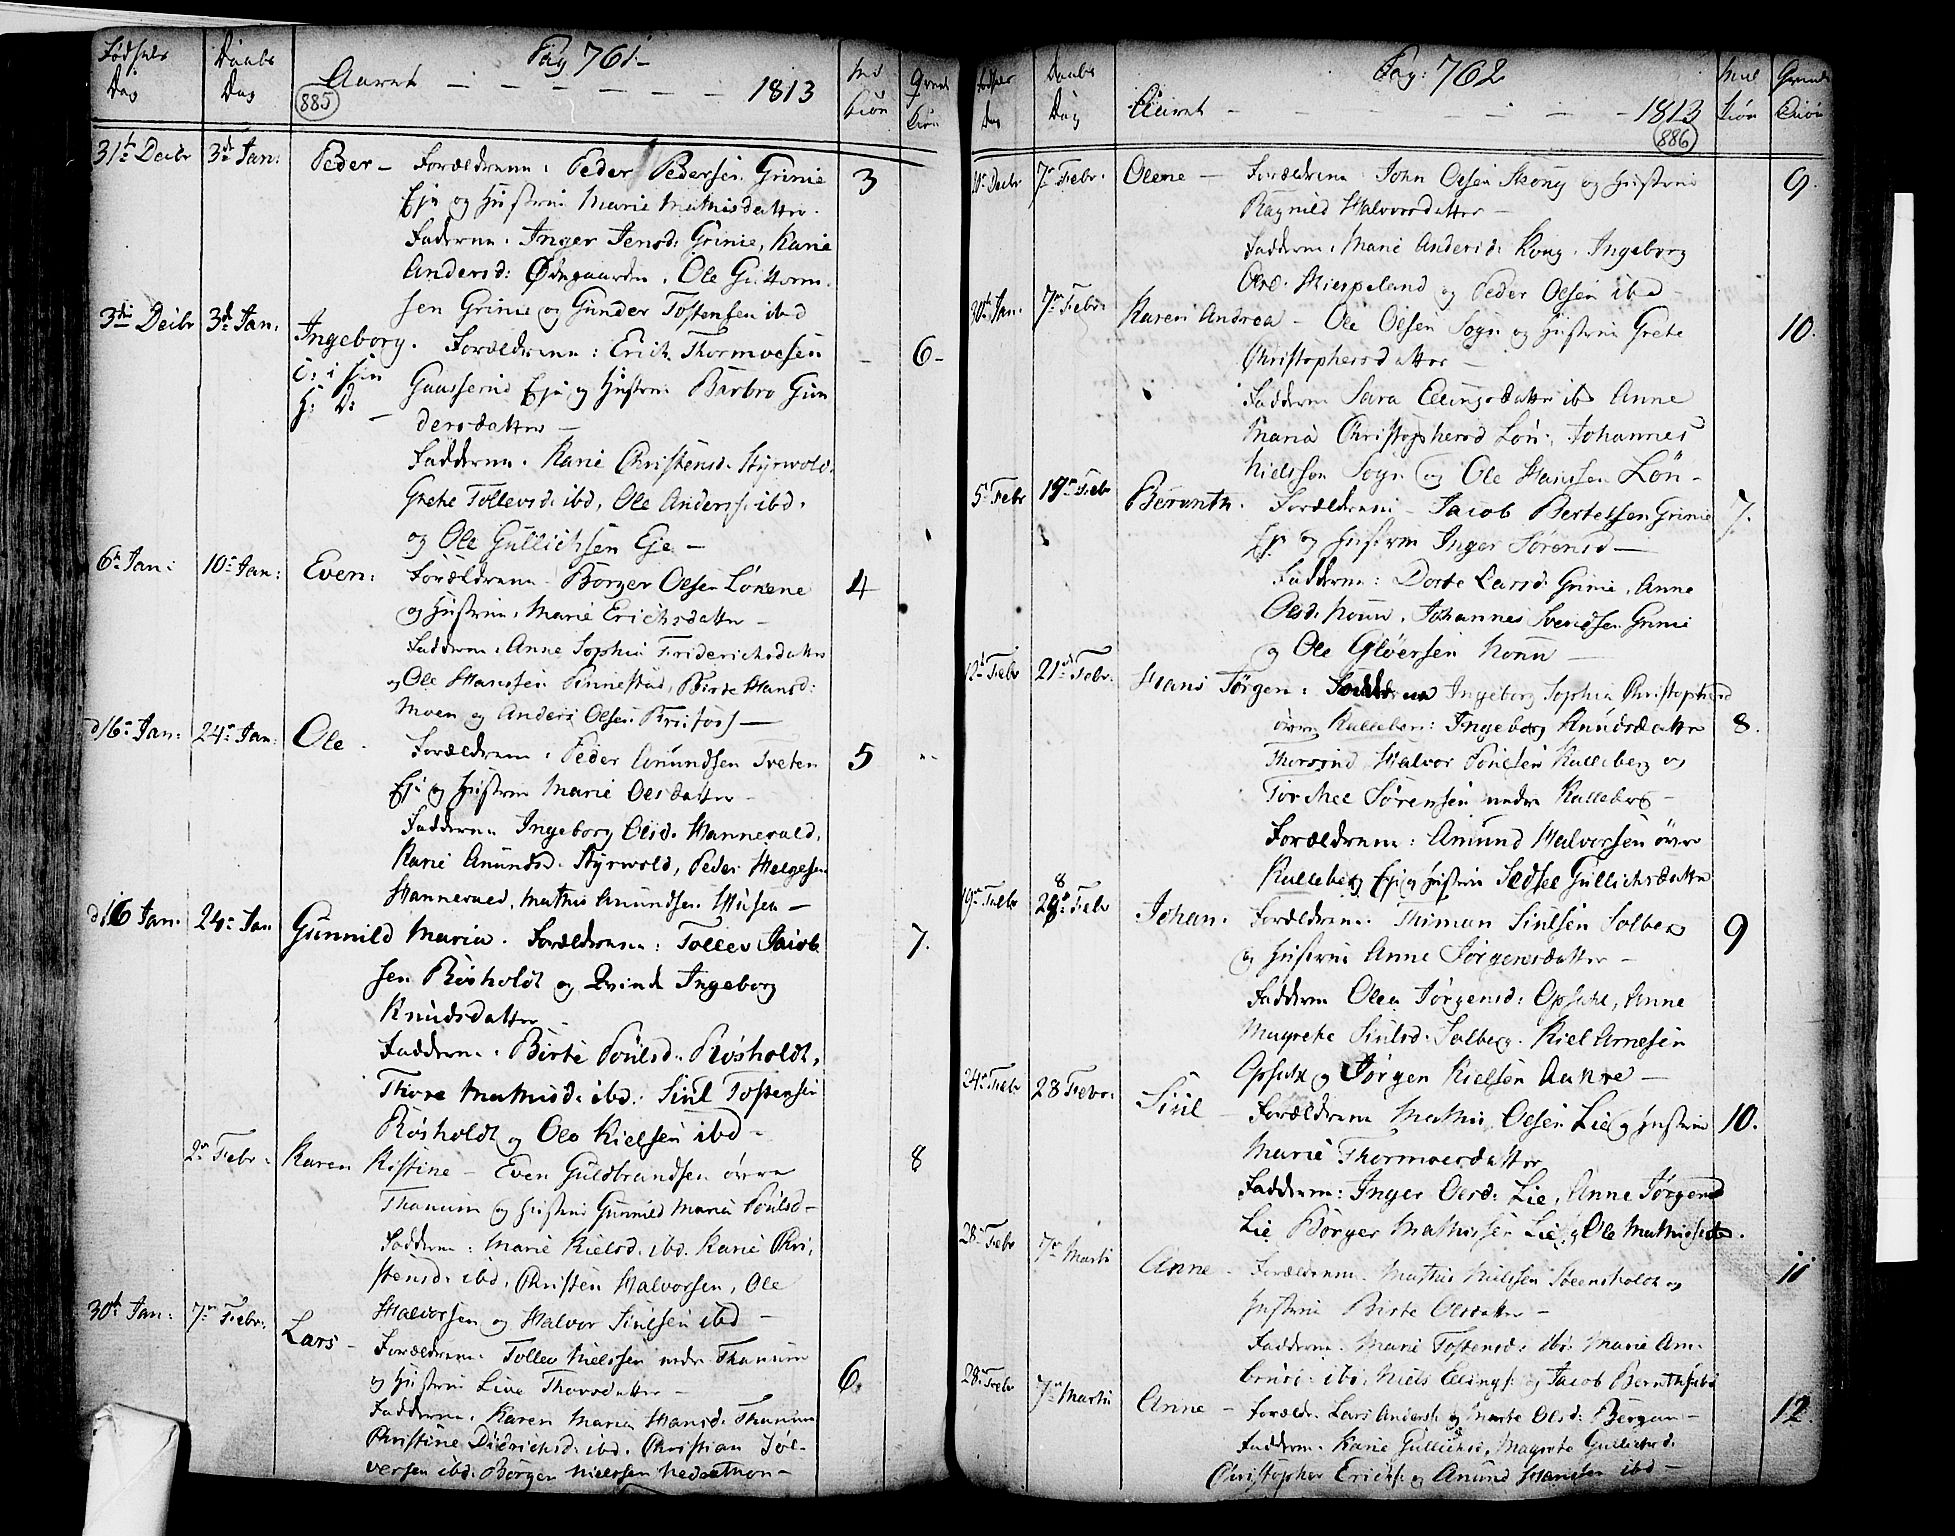 Fødsels Dag
Daabs Dag
Pag 761
Aaret - - - - - - 1813
885
Md Kiøn
Qvinde Kiøn
31te Decbr 3de Jan: Peder - Forældrene: Peder Pedersen Grinie 3
Eje og Hustrue Marie Mathisdatter
Fadderne: Inger Jensd: Grinie, Karie
Andersd: Ødegaarden, Ole Guttorm
sen Grinie og Gunder Tostensen ibd
3die Decbr 3de Jan: Ingeborg. Forældrene: Erich Thormoesen - 6-
Eje og Hustrue Barbro Gun
dersdatter -
Fadderne. Karie Christensd. Styrvold.
Grethe Tollevsd. ibd, Ole Anderss. ibd.
og Ole Gullichsen Eje -
6te Jan: 10de Jan: Even: Forældrene - Børger Olsen Lonene 4
og Hustrue, Marie Erichsdatter -
Fadderne: Anne Sophia Friderichsdatter
og Ole Hanssen Rinnestad, Birte Hansd:
Moen og Anders Olsen
d 16de Jan: 24de Jan: Ole - Forældrene: Peder Amundsen Sveten 5
Eje og Hustrue Marie Olsdatter -
Fadderne Ingeborg Olsd. Hannevald,
Karie Anundsd. Styrvold, Peder Helgesen
Hannevald, Mathis Anundsen -
d 16 Jan: 24de Jan Gunnild Maria. Forældrene: Tollev Jacob 7.
sen Røsholdt og Qvinde Ingeborg
Knudsdatter -
Fadderne. Birte Poulsd. Røsholdt,
Thore Mathisd. ibd. Siul Tostensen
Røsholdt og Ole Kielsen ibd -
2de Febr: Karen Kistine - Even Guldbrandsen øvre 8
Thanum og Hustrue Gunnild Maria Poulsd -
Fadderne: Marie Kielsd. ibd. Karie Chri
stensd: ibd, Christen Halvorsen, Ole
Halvorsen og Halvor Siulsen ibd -
30te Jan: 7de Febr: Lars - Forældrene: Tollev Nielssen nedre Thanum 6.
og Hustrue Live Thorsdatter -
Fadderne: Karen Maria Hansd: Thanum
Christine Didrichsd. ibd. Christian Tol
versen ibd: Børger Nielssen
Fødsels Dag
Daabs Dag
Pag: 762
Aaret - - - - - 1813
886
Mand Kiøn
Qvinde Kiøn
Decbr 7de Febr: Olene - Forældrene: John Olsen Skong og Hustrue 9.
Ragnild Halvorsdatter -
Fadderne: Marie Andersd: Kong. Ingeborg
Olsd. Skiespeland og Peder Olsen ibd -
30te Jan: 7de Febr: Karen Andrea - Ole Olsen Sogn og Hustrue Grete 10.
Christophersdatter -
Fadderne Sara Ellingsdatter ibd Anne
Maria Christophersd Løn, Johannes
Nielsson Sogn og Ole Hanssen Løn -
5te Febr 19de Febr Berenth. Forældrene - Jacob Bertelsen Grinie 7.
Eje og Hustrue Inger Sørensd -
Fadderne: Dorte Larsd. Grinie, Anne
Olsd. Houn, Johannes Svendsen Grinie
og Ole Gløersen Houn -
12te Febr 21de Febr: Hans Jørgen: Fadderne Ingeborg Sophia Christophersd
øvre Kalleberg: Ingeborg Knudsdatter 8.
Halvor Poulsen Kalleberg og
Tor Mee Sørensen nedre Kalleberg -
Forældrene: Amund Halvorsen øvre
Kalleberg Eje og Hustrue Sedsel Gullichsdatter
19de Febr 28de Febr Johan. Forældrene. Thiman Siulsen Solberg 9
og Hustrue Anne Jørgensdatter -
Fadderne Olea Jørgensd: Opsahl, Anne
Magrethe Siulsd. Solberg. Kiel Arnesen
Opsahl og Jørgen Kielsen Aakre -
24de Febr 28 Febr: Siul - Forældrene Mathis Olsen Lie og Hustrue 10.
Marie Thormoesdatter
Fadderne: Inger Olsd: Lie, Anne Jørgensd
Lie Børger Mathissen Lie, og Ole Mathissen ibd.
28de Febr 7de Marti Anne - Forældrene. Mathis Nielssen Steensholdt og 11
Hustrue Birte Olsdatter -
Fadderne. Marie Tostensd: ibd: Marie Am
Niels Ellings: og Jacob Berenths ibd
28de Febr 7de Marti Anne - Forældr. Lars Anderss og Marte Olsd: Bergan - 12.
Fadderne. Karie Gullichsd, Magrete Gullichsd.
Christopher Erichs: og Anund Hanssen ibd -